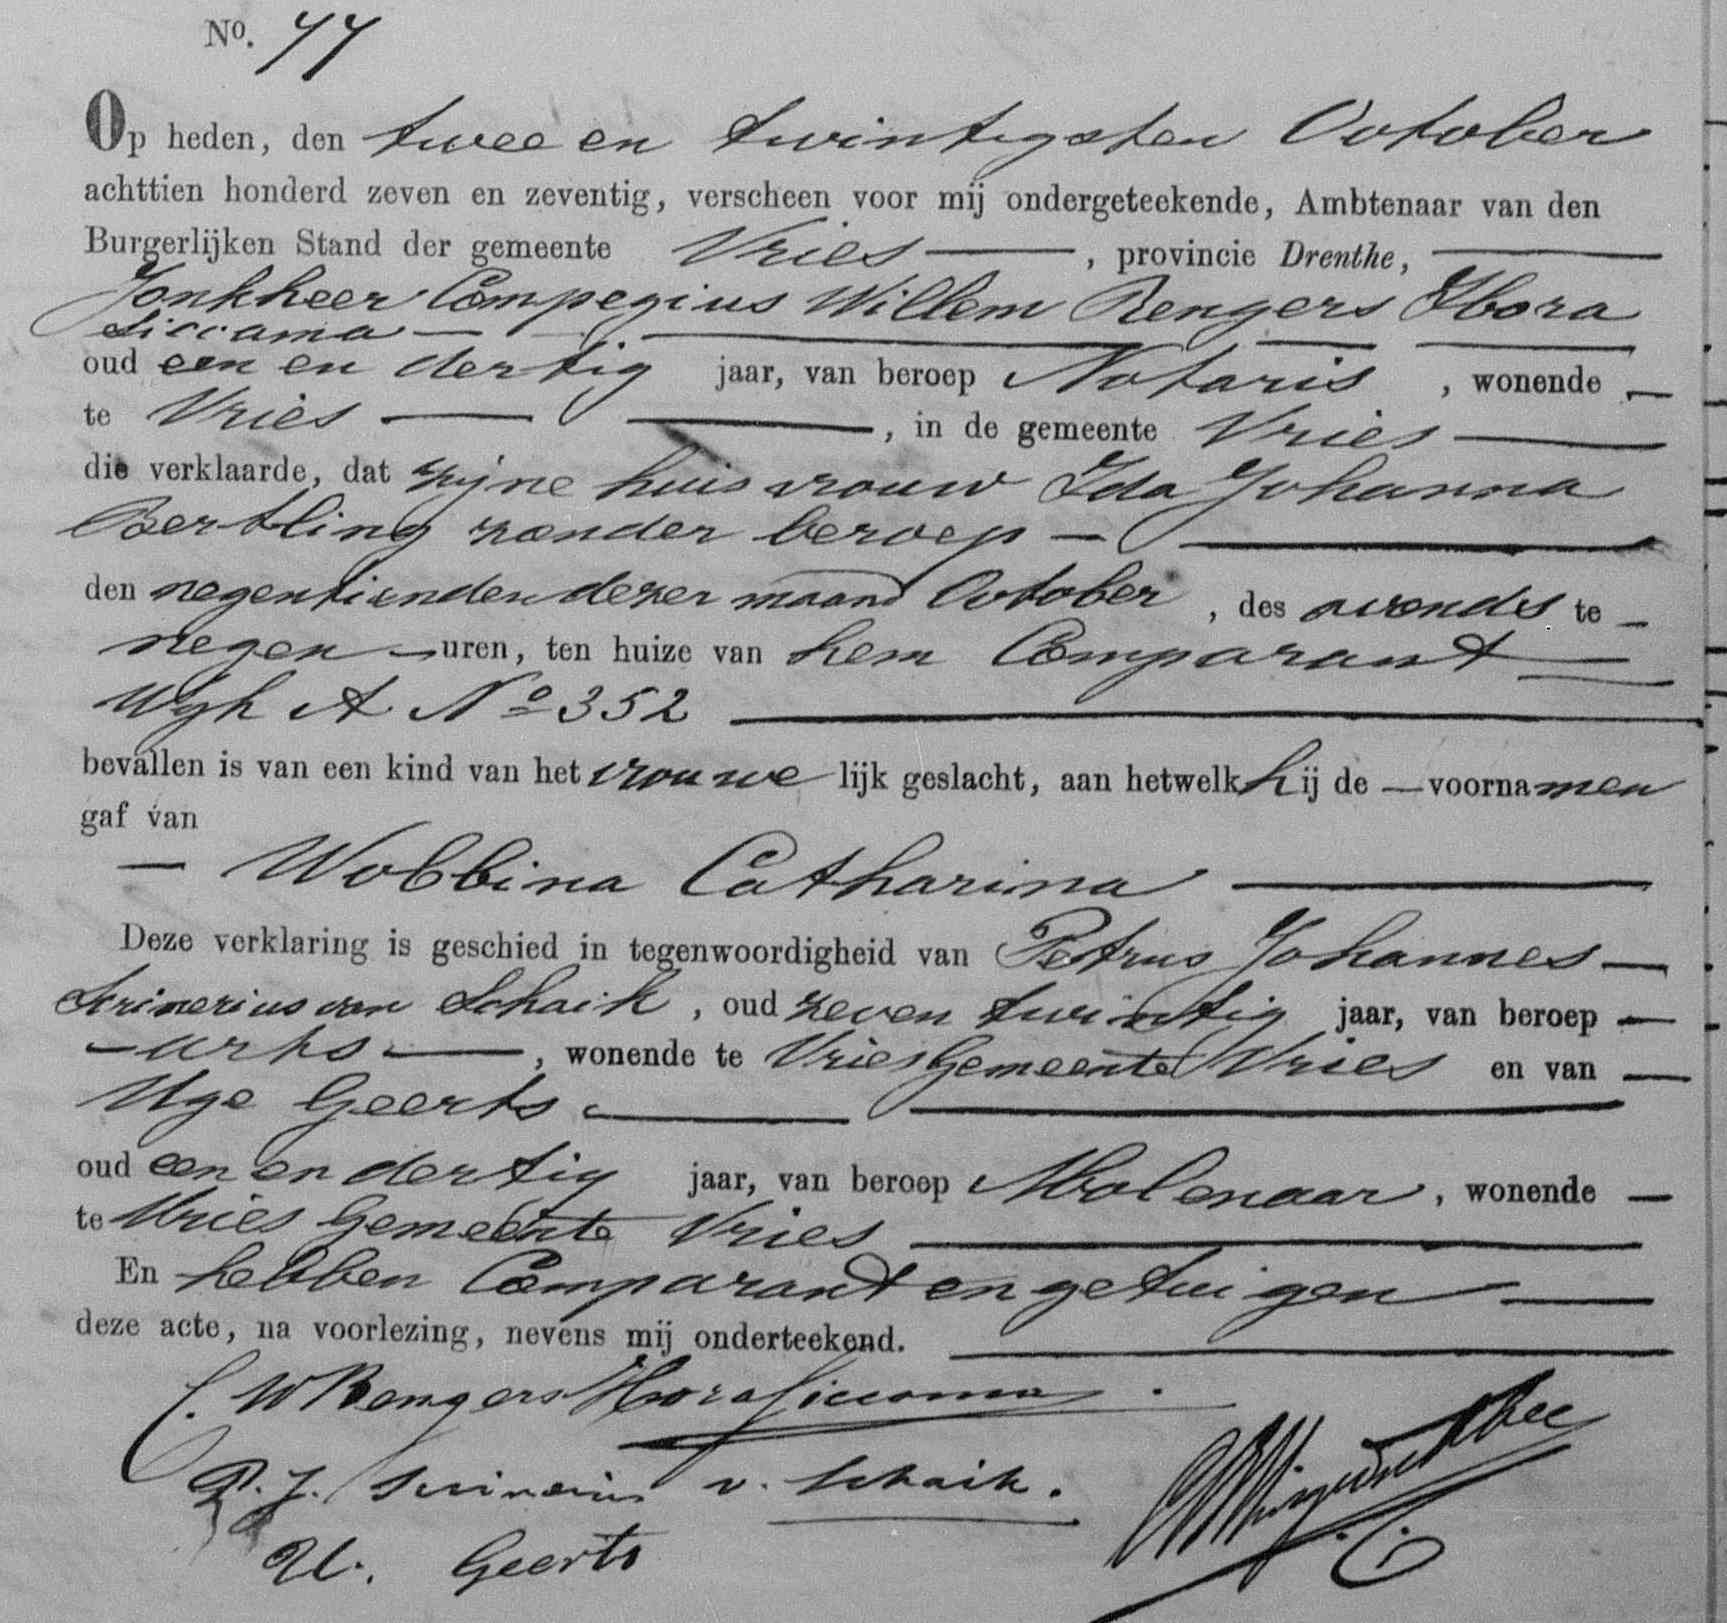 No. 77
Op heden, den twee en twintigsten October
achttien honderd zeven en zeventig, verscheen voor mij ondergeteekende, Ambtenaar van den
Burgerlijken Stand der gemeente Vries, provincie Drenthe,
Jonkheer Compegius Willem Rengers Hora
Siccama
oud een en dertig jaar, van beroep Notaris, wonende
te Vries, in de gemeente Vries
die verklaarde, dat zijne huisvrouw Ida Johanna
Bertling zonder beroep
den negentienden dezer maand October, des avonds te
negen uren, ten huize van hem Comparant
Wyk A No 352
bevallen is van een kind van het vrouwelijk geslacht, aan hetwelk hij de voornamen
gaf van
Wobbina Catharina
Deze verklaring is geschied in tegenwoordigheid van Petrus Johannes
Scrinerius van Schaik, oud zeven twintig jaar, van beroep
arts, wonende te Vries Gemeente Vries en van
Uge Geerts
oud een en dertig jaar, van beroep Molenaar, wonende
te Vries Gemeente Vries
En hebben Comparant en getuigen
deze acte, na voorlezing, nevens mij onderteekend.
C. W Rengers Hora Siccama.
P. J. Scrinerius v. Schaik.
U. Geerts